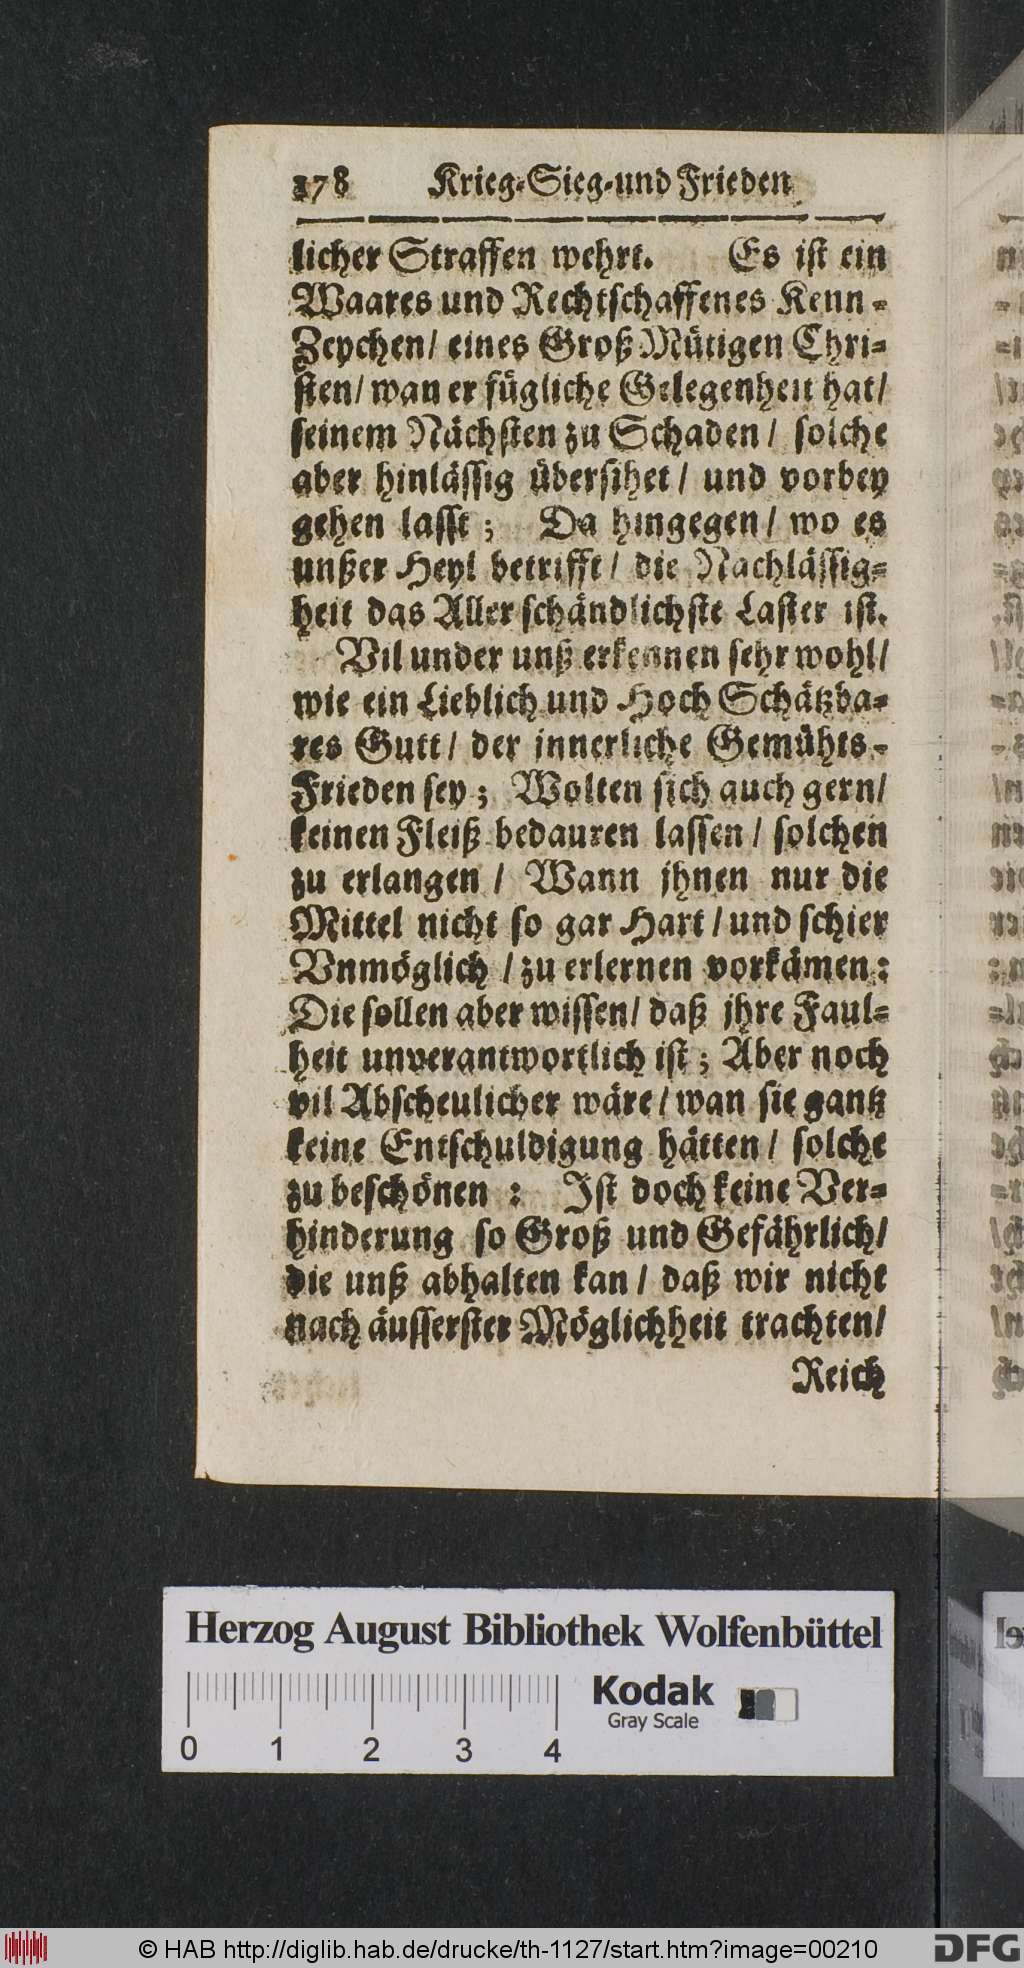 178 Krieg-Sieg-und Frieden
licher Straffen wehrt. Es ist ein
Waares und Rechtschaffenes Kenn-
Zeychen/ eines Groß Mütigen Chri-
sten/ wan er fügliche Gelegenheit hat/
seinem Nächsten zu Schaden/ solche
aber hinlässig übersihet/ und vorbey
gehen lasst; Da hingegen/ wo es
unßer Heyl betrifft/ die Nachlässig-
heit das Aller schändlichste Laster ist.
Vil under unß erkennen sehr wohl/
wie ein Lieblich und Hoch Schätzba-
res Gutt/ der innerliche Gemühts-
Frieden sey; Wolten sich auch gern/
keinen Fleiß bedauren lassen/ solchen
zu erlangen/ Wann jhnen nur die
Mittel nicht so gar Hart/ und schier
Vnmöglich/ zu erlernen vorkämen:
Die sollen aber wissen/ daß jhre Faul-
heit unverantwortlich ist; Aber noch
vil Abscheulicher wäre/ wan sie gantz
keine Entschuldigung hätten/ solche
zu beschönen: Ist doch keine Ver-
hinderung so Groß und Gefährlich/
die unß abhalten kan/ daß wir nicht
nach äusserster Möglichheit trachten/
Reich
Herzog August Bibliothek Wolfenbüttel
Kodak
Gray Scale
0 1 2 3 4
© HAB http://diglib.hab.de/drucke/th-1127/start.htm?image=00210
DFG